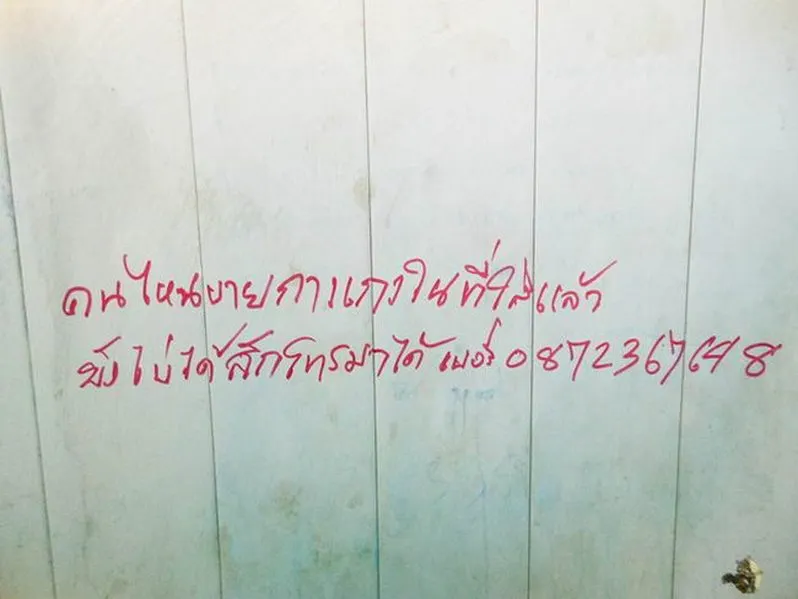 คนไหนขายกางเกงในที่ใส่แล้ว
ยังไม่ได้สักโทรมาได้ เบอร์ 0872367648